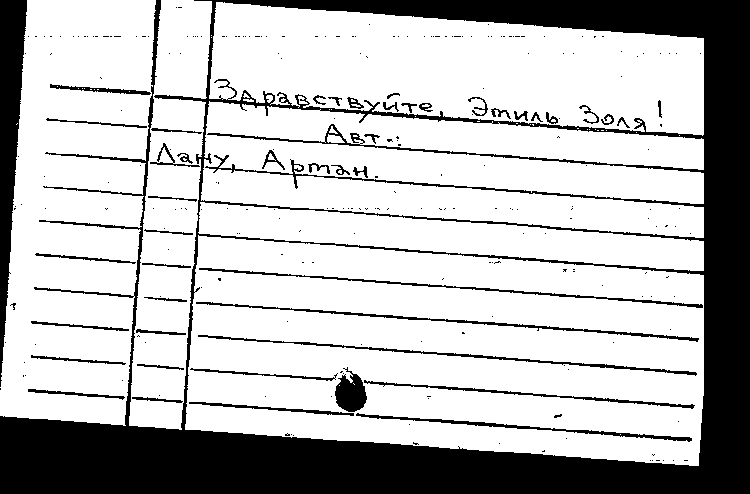 Здравствуйте, Эмиль Золя!
Авт.:
Лану, Арман.